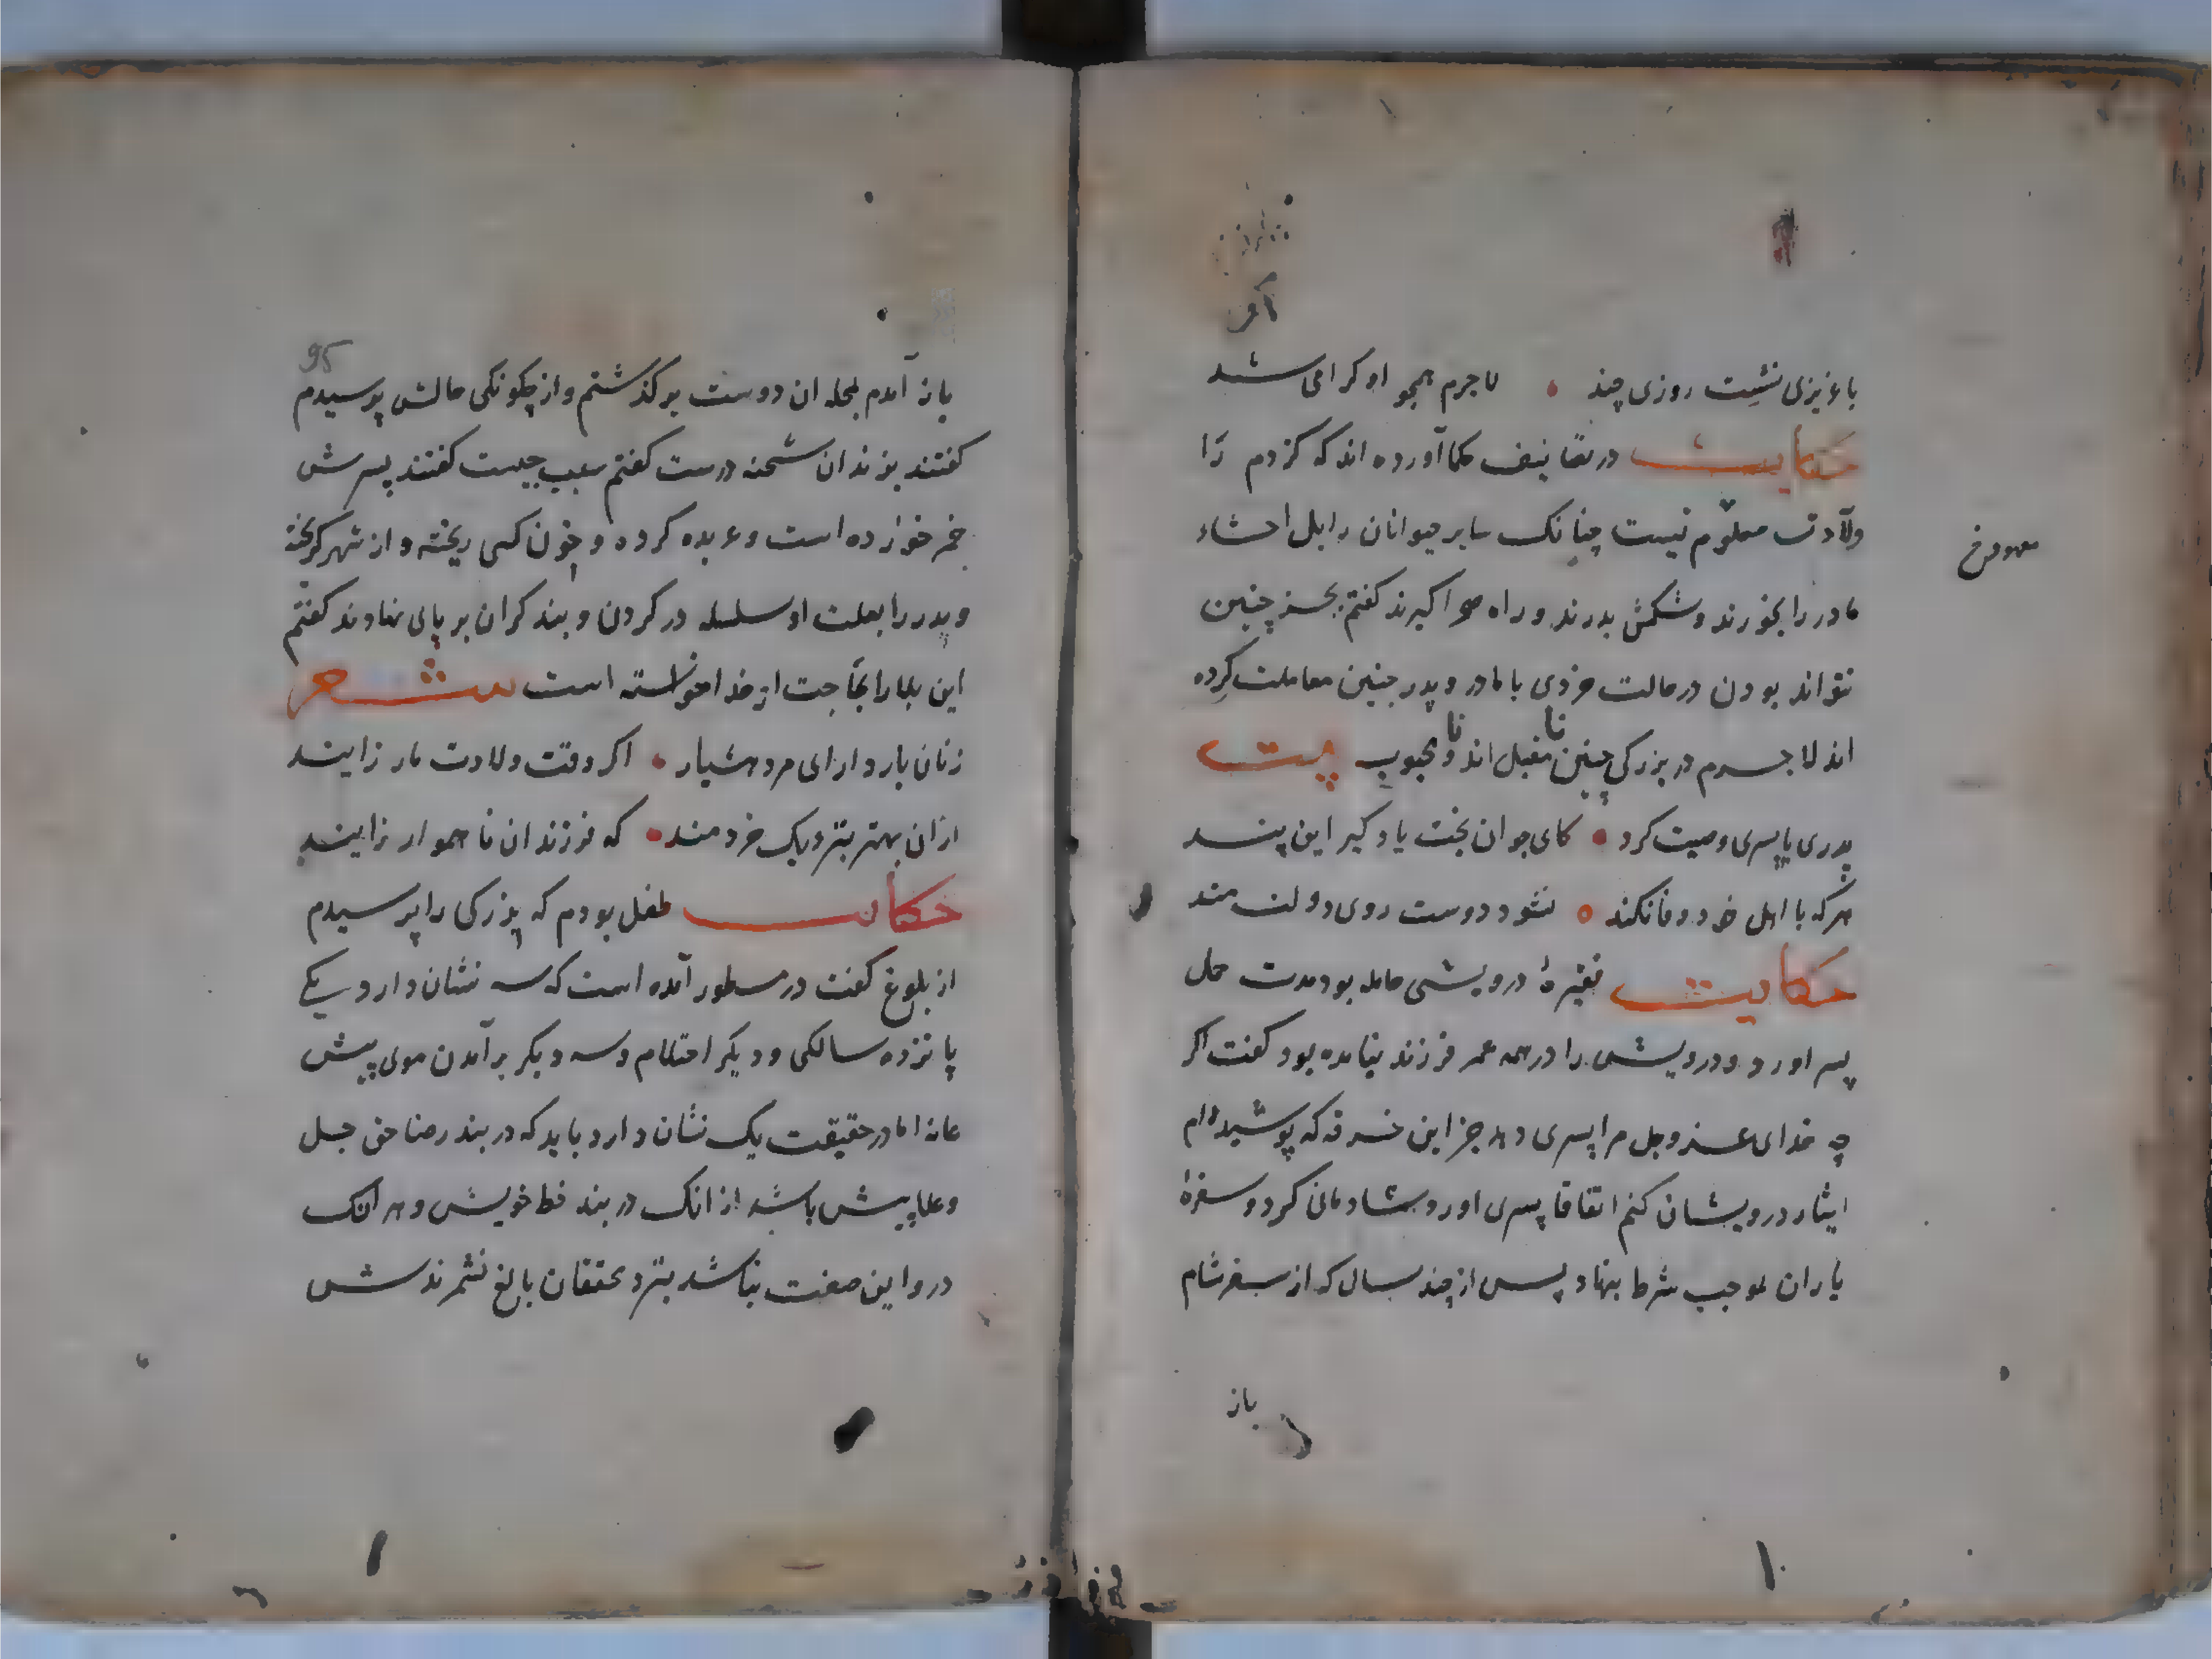 با عزیزی نشست روزی چند • لاجرم همجو او کرامی شد
حکایت در تصانیف حکما آورده اند که کزدم را
ولادت معلوم نیست چنانک سایر حیوانان را بل احشاء
مادر را بخورند و شکمش بدرند و راه صحرا کیرند کفتم بجز چنین
نتواند بودن در حالت خردی با مادر و پدر جنین معاملت کرده
اند لاجرم در بزرکی چنین نا مقبل اند و نا محبوب بیت
پدری با پسری وصیت کرد • کای جوان بخت یاد کیر این پند
هرکه با اهل خود وفا نکند • نشود دوست روی دولت مند
حکایت فقیرهٔ درویشی حامله بود مدت حمل
بسر اورد و درویش را در همه عمر فرزند نیامده بود کفت اکر
چه خدای عز و جل مرا پسری دهد جز این خرقه که پوشیده ام
ایثار درویشان کنم اتفاقا پسری اورد و شادمانی کرد و سفرهٔ
یاران بموجب شرط بنهاد پس از چند سال که از سفر شام
باز
95
باز آمدم بمحله ان دوست برکذشتم و از چکونکی حالش پرسیدم
کفتند بزندان شحنه درست کفتم سبب جیست کفتند پسرش
خمر خورده است و عربده کرده و خون کسی ریخته و از شهر کریخته
و پدر را بعلت او سلسله در کردن و بند کران بر پای نهادند کفتم
این بلا را بحاجت از خدا خواسته است شعر
زنان باردار ای مرد هشیار • اکر وقت ولادت مار زایند
ازان بهتر بنزدیک خردمند • که فرزندان ناهموار زایند
حکایت طفل بودم که بزرکی را پرسیدم
از بلوغ کفت در مسطور آمده است که سه نشان دارد یکی
پانزده سالکی و دیکر احتلام و سه دیکر برآمدن موی پیش
عانه اما در حقیقت یک نشان دارد باید که در بند رضا حق جل
وعلا پیش باشد از انک در بند خط خویش و هر انک
درو این صفت نباشد بنزد محققان بالغ نشمرندش